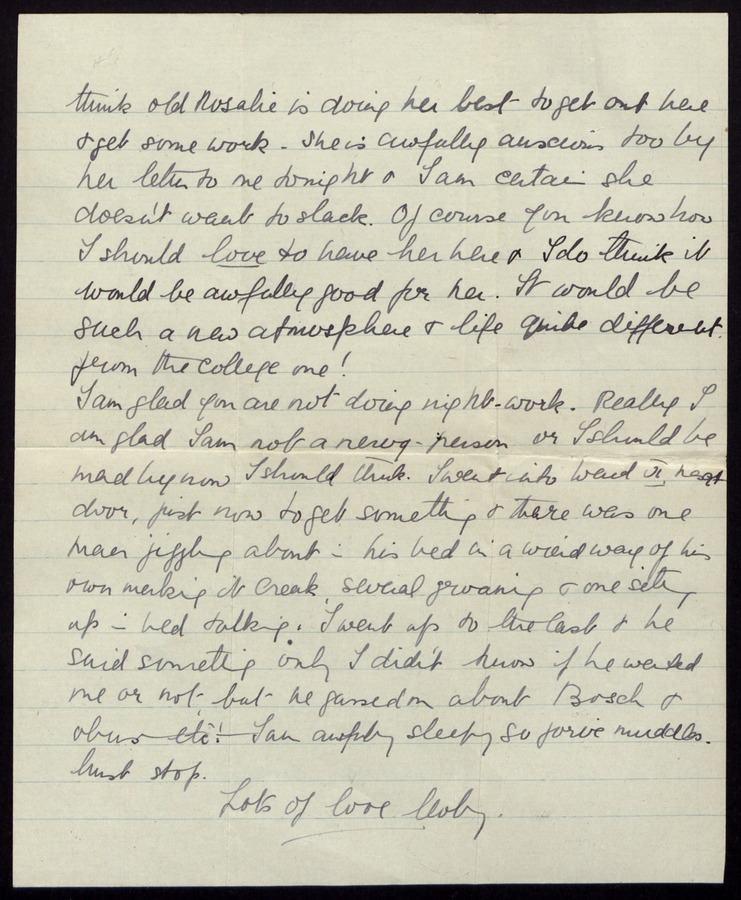 think old Rosalie is doing her best to get out here
& get some work - She is awfully anxious too by
her letter to me tonight & I am certain she
doesn't want to slack. Of course you know how
I should love to have her here & I do think it
would be awfully good for her. It would be
such a new atmosphere & life quite different
from the college one!
I am glad you are not doing night-work. Really I
am glad I am not a nervy-person or I should be
mad by now I should think. I went into ward VI, next
door, just now to get something & there was one
man jiggling about in his bed in a wierd way of his
own making it creak, several groaning & one sitting
up in bed talking. I went up to the last & he
said something only I didn't know if he wanted
me or not, but he jawed on about Bosch &
obus etc! I am awfully sleepy so forive muddles.
Must stop.
Lots of love